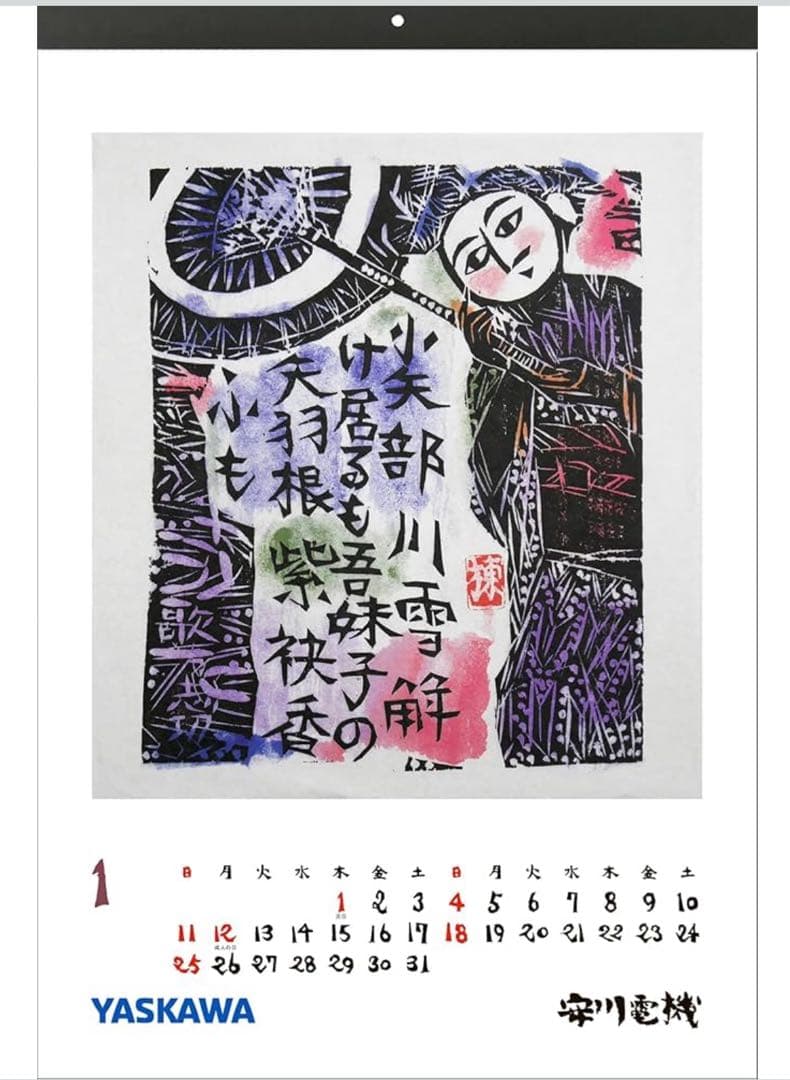 小矢部川雪解
け居るも吾妹子の
矢羽根紫袂香
ふも
棟
1
日 月 火 水 木 金 土 日 月 火 水 木 金 土
1 2 3 4 5 6 7 8 9 10
元日
11 12 13 14 15 16 17 18 19 20 21 22 23 24
成人の日
25 26 27 28 29 30 31
YASKAWA
安川電機